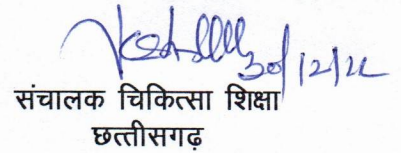 30/12/22
संचालक चिकित्सा शिक्षा
छत्तीसगढ़